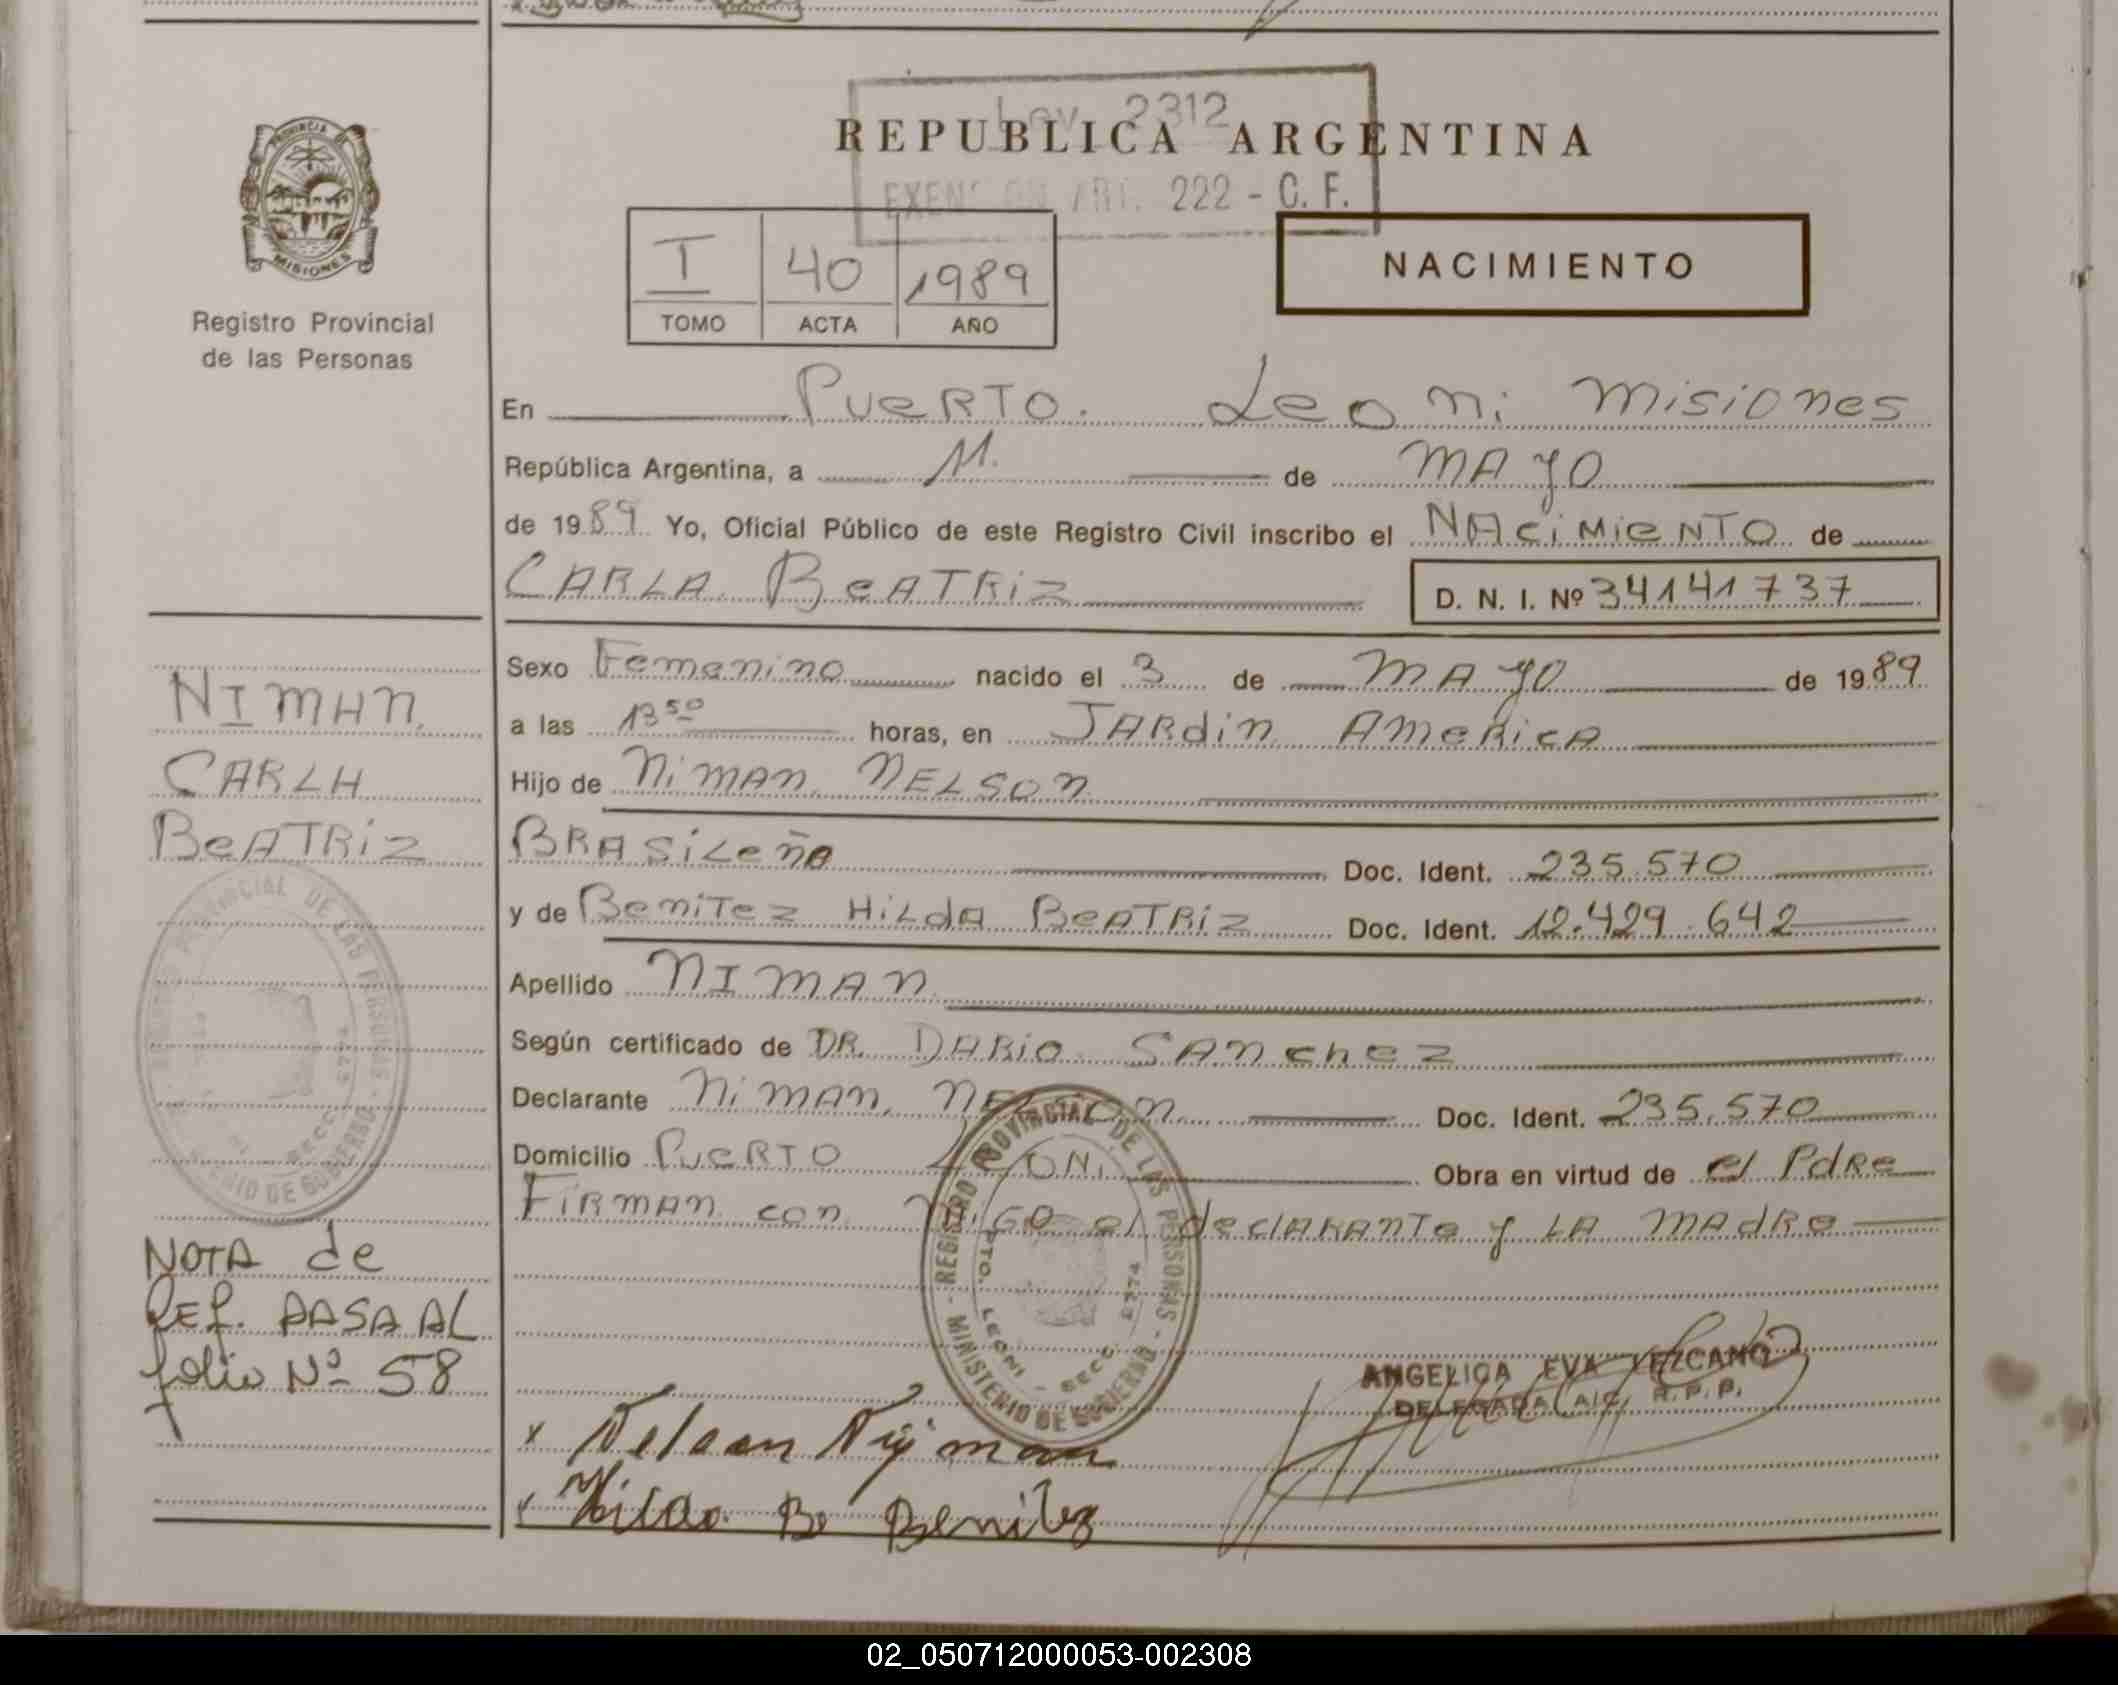 PROVINCIA DE
MISIONES
Registro Provincial
de las Personas
Ley 2312
REPUBLICA ARGENTINA
EXENCION ART. 222 - C. F.
I 40 1989
TOMO ACTA AÑO
NACIMIENTO
En Puerto Leoni Misiones
República Argentina, a 11 de MAYO
de 1989 Yo, Oficial Público de este Registro Civil inscribo el NACiMieNTO de
CARLA BeATRiz
D. N. I. Nº 34141737
Sexo Femenino nacido el 3 de MAYO de 1989
a las 13 50 horas, en JARdin AmeRicA
Hijo de NiMAN NELSON
BRASiLeño Doc. Ident. 235.570
y de BeniTez HiLdA BeATRiz Doc. Ident. 12.429.642
Apellido NIMAN
Según certificado de DR. DARio SANchez
Declarante NiMAN NELSON Doc. Ident. 235.570
Domicilio PueRTO LeONi Obra en virtud de el PdRe
FiRMAN con migo el declARANTe y LA MAdRe
NIMAN
CARLA
BeATRiz
NOTA de
REF. PASA AL
folio Nº 58
REGISTRO PROVINCIAL DE LAS PERSONAS - MINISTERIO DE GOBIERNO -
PTO. LEONI - SECC. 2774
ANGELICA EVA LEZCANO
DELEGADA A/C. R.P.P.
x Nelson Nijman
x Hilda Be Benitez
02_050712000053-002308